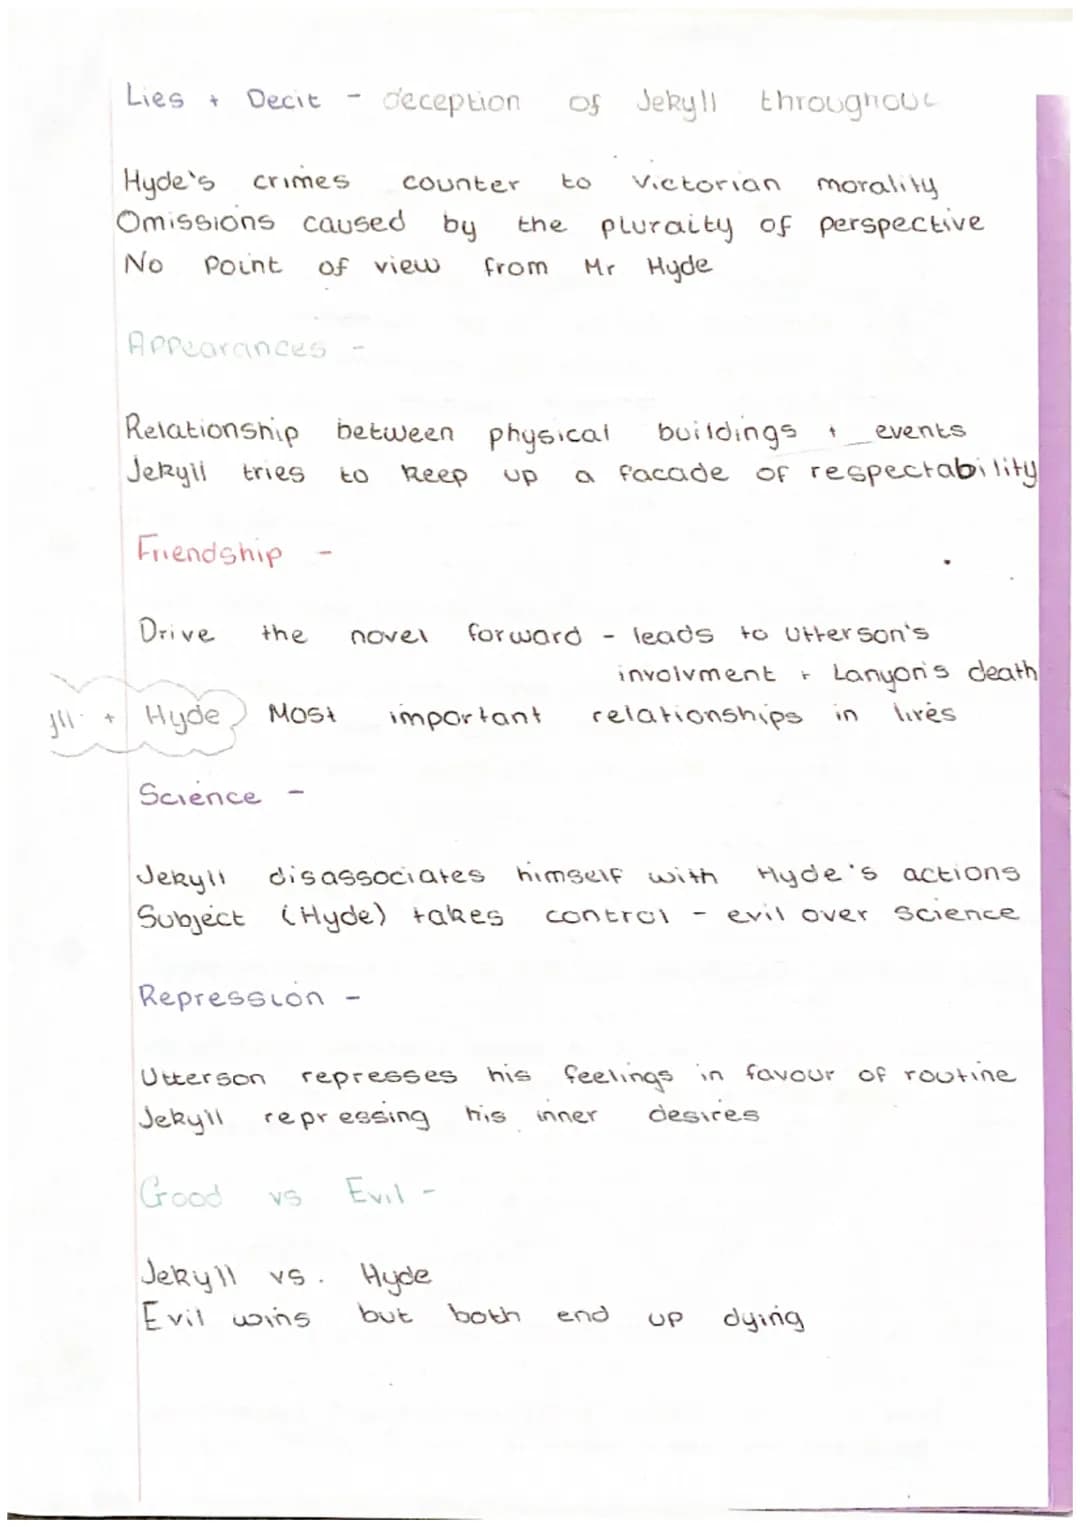 Lies + Decit - deception of Jekyll throughout
Hyde's crimes counter to Victorian morality
Omissions caused by the pluraity of perspective
No point of view from Mr Hyde
Appearances -
Relationship between physical buildings + events
Jekyll tries to keep up a facade of respectability
Friendship -
Drive the novel forward - leads to Utterson's
involvment + Lanyon's death
yll + Hyde Most important relationships in lives
Science -
Jekyll disassociates himself with Hyde's actions
Subject (Hyde) takes control - evil over science
Repression -
Utterson represses his feelings in favour of routine
Jekyll repressing his inner desires
Good vs Evil -
Jekyll vs. Hyde
Evil wins but both end up dying